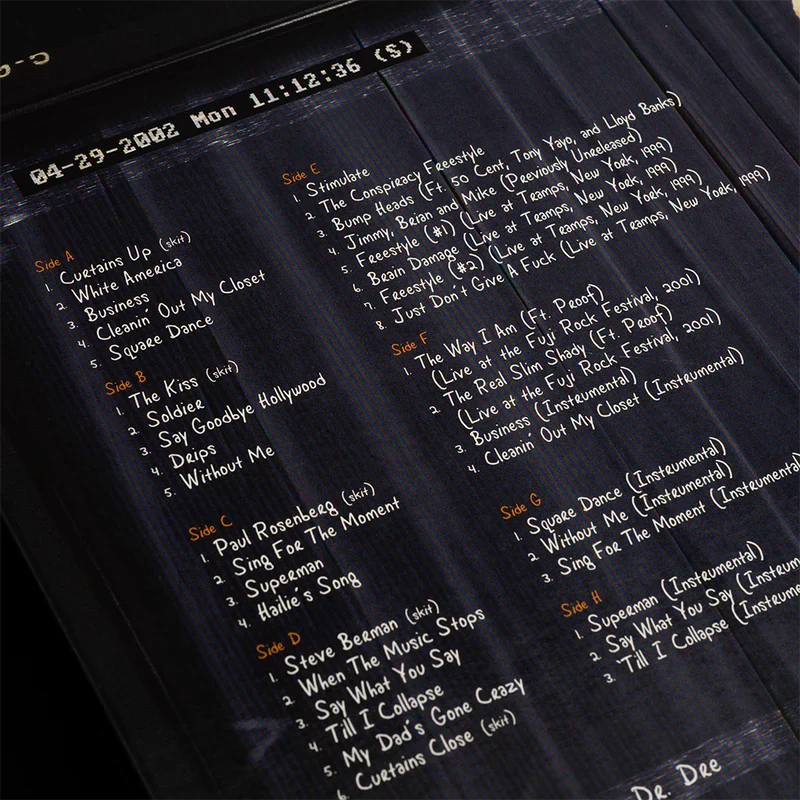 04-29-2002 Mon 11:12:36 (S)
Side A
1. Curtains Up (skit)
2. White America
3. Business
4. Cleanin' Out My Closet
5. Square Dance
Side B
1. The Kiss (skit)
2. Soldier
3. Say Goodbye Hollywood
4. Drips
5. Without Me
Side C
1. Paul Rosenberg (skit)
2. Sing For The Moment
3. Superman
4. Hailie's Song
Side D
1. Steve Berman (skit)
2. When The Music Stops
3. Say What You Say
4. Till I Collapse
5. My Dad's Gone Crazy
6. Curtains Close (skit)
Side E
1. Stimulate
2. The Conspiracy Freestyle
3. Bump Heads (Ft. 50 Cent, Tony Yayo, and Lloyd Banks)
4. Jimmy, Brian and Mike (Previously Unreleased)
5. Freestyle (#1) (Live at Tramps, New York, 1999)
6. Brain Damage (Live at Tramps, New York, 1999)
7. Freestyle (#2) (Live at Tramps, New York, 1999)
8. Just Don't Give A Fuck (Live at Tramps, New York, 1999)
Side F
1. The Way I Am (Ft. Proof)
(Live at the Fuji Rock Festival, 2001)
2. The Real Slim Shady (Ft. Proof)
(Live at the Fuji Rock Festival, 2001)
3. Business (Instrumental)
4. Cleanin' Out My Closet (Instrumental)
Side G
1. Square Dance (Instrumental)
2. Without Me (Instrumental)
3. Sing For The Moment (Instrumental)
Side H
1. Superman (Instrumental)
2. Say What You Say (Instrum
3. Till I Collapse (Instrume
Dr. Dre